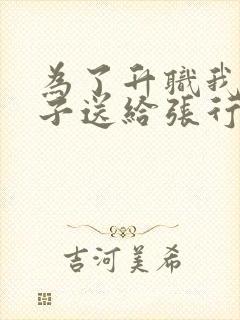 為了升職我
子送給張行
吉河美希